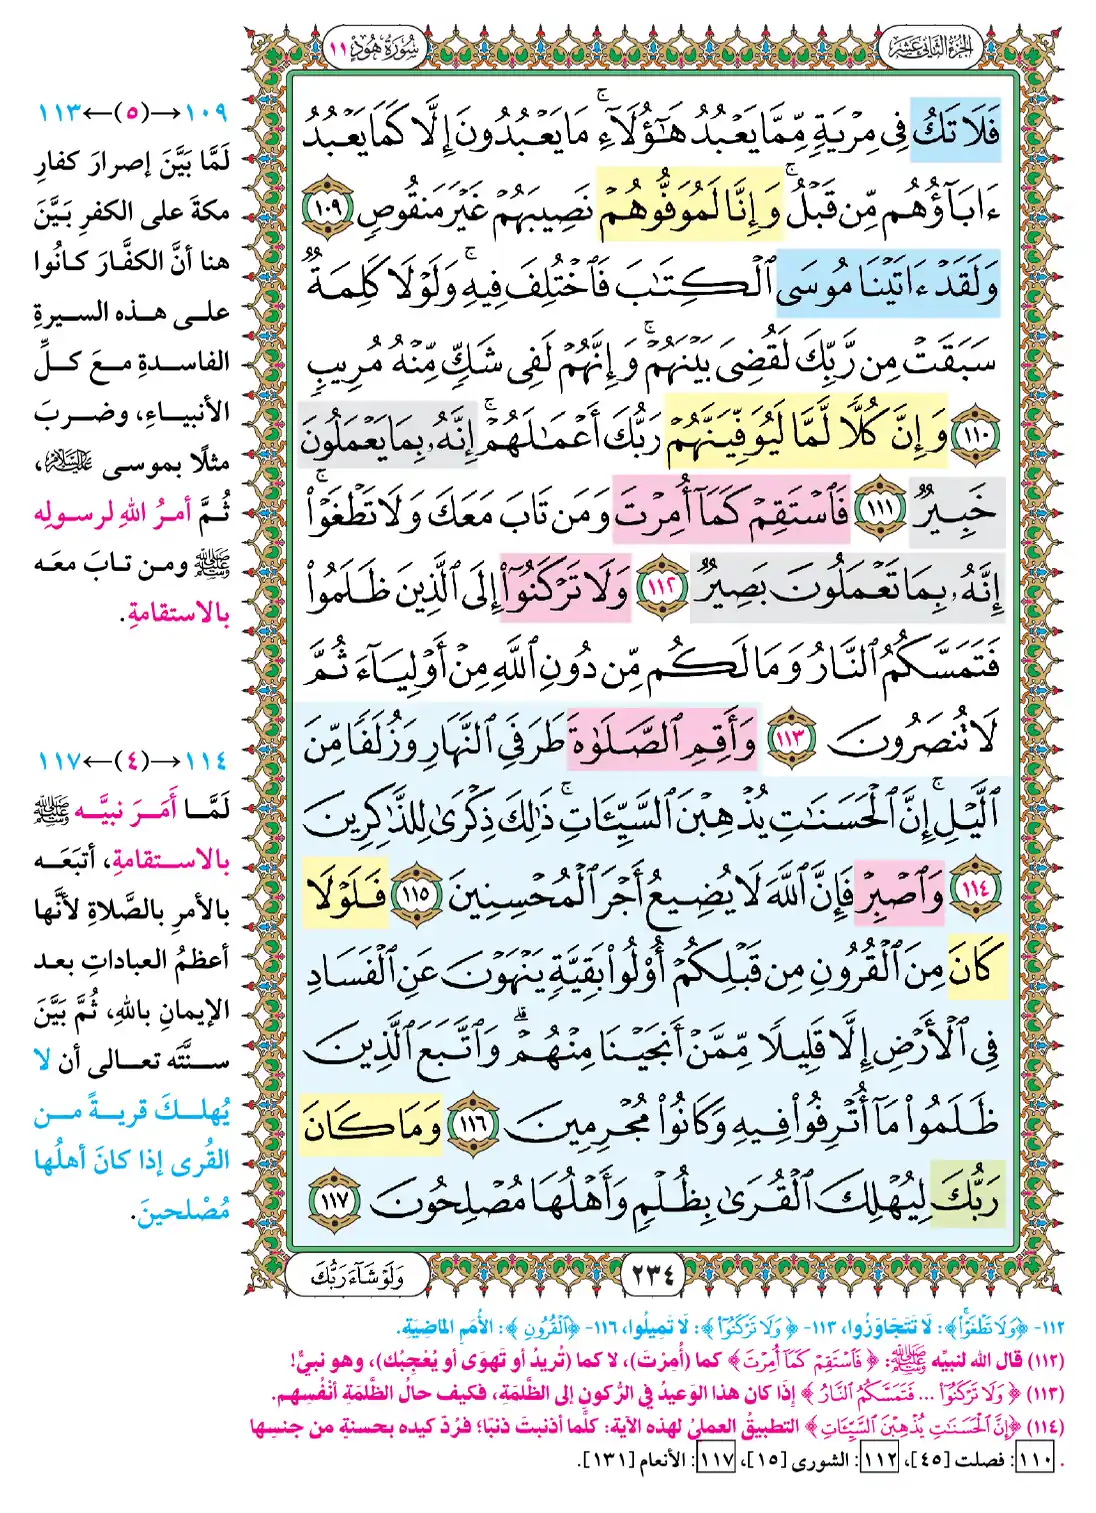 الجزء الثاني عشر
سُورَةُ هُودٍ ١١
فَلَا تَكُ فِي مِرْيَةٍ مِّمَّا يَعْبُدُ هَٰٓؤُلَآءِ ۚ مَا يَعْبُدُونَ إِلَّا كَمَا يَعْبُدُ
ءَابَآؤُهُم مِّن قَبْلُ ۚ وَإِنَّا لَمُوَفُّوهُمْ نَصِيبَهُمْ غَيْرَ مَنقُوصٍ ١٠٩
وَلَقَدْ ءَاتَيْنَا مُوسَى ٱلْكِتَٰبَ فَٱخْتُلِفَ فِيهِ ۚ وَلَوْلَا كَلِمَةٌ
سَبَقَتْ مِن رَّبِّكَ لَقُضِىَ بَيْنَهُمْ ۚ وَإِنَّهُمْ لَفِى شَكٍّ مِّنْهُ مُرِيبٍ
١١٠ وَإِنَّ كُلًّا لَّمَّا لَيُوَفِّيَنَّهُمْ رَبُّكَ أَعْمَٰلَهُمْ ۚ إِنَّهُۥ بِمَا يَعْمَلُونَ
خَبِيرٌ ١١١ فَٱسْتَقِمْ كَمَآ أُمِرْتَ وَمَن تَابَ مَعَكَ وَلَا تَطْغَوْا۟ ۚ
إِنَّهُۥ بِمَا تَعْمَلُونَ بَصِيرٌ ١١٢ وَلَا تَرْكَنُوٓا۟ إِلَى ٱلَّذِينَ ظَلَمُوا۟
فَتَمَسَّكُمُ ٱلنَّارُ وَمَا لَكُم مِّن دُونِ ٱللَّهِ مِنْ أَوْلِيَآءَ ثُمَّ
لَا تُنصَرُونَ ١١٣ وَأَقِمِ ٱلصَّلَوٰةَ طَرَفَىِ ٱلنَّهَارِ وَزُلَفًا مِّنَ
ٱلَّيْلِ ۚ إِنَّ ٱلْحَسَنَٰتِ يُذْهِبْنَ ٱلسَّيِّـَٔاتِ ۚ ذَٰلِكَ ذِكْرَىٰ لِلذَّٰكِرِينَ
١١٤ وَٱصْبِرْ فَإِنَّ ٱللَّهَ لَا يُضِيعُ أَجْرَ ٱلْمُحْسِنِينَ ١١٥ فَلَوْلَا
كَانَ مِنَ ٱلْقُرُونِ مِن قَبْلِكُمْ أُو۟لُوا۟ بَقِيَّةٍ يَنْهَوْنَ عَنِ ٱلْفَسَادِ
فِى ٱلْأَرْضِ إِلَّا قَلِيلًا مِّمَّنْ أَنجَيْنَا مِنْهُمْ ۗ وَٱتَّبَعَ ٱلَّذِينَ
ظَلَمُوا۟ مَآ أُتْرِفُوا۟ فِيهِ وَكَانُوا۟ مُجْرِمِينَ ١١٦ وَمَا كَانَ
رَبُّكَ لِيُهْلِكَ ٱلْقُرَىٰ بِظُلْمٍ وَأَهْلُهَا مُصْلِحُونَ ١١٧
٢٣٤
وَلَوْ شَآءَ رَبُّكَ
١٠٩→(٥)←١١٣
لَمَّا بَيَّنَ إصرارَ كفارِ
مكةَ على الكفرِ بَيَّنَ
هنا أنَّ الكفَّارَ كانُوا
على هذه السيرةِ
الفاسدةِ معَ كلِّ
الأنبياءِ، وضربَ
مثلًا بموسى عليه السلام،
ثُمَّ أمرُ اللهِ لرسولِه
ﷺ ومن تابَ معَه
بالاستقامةِ.
١١٤→(٤)←١١٧
لَمَّا أَمَرَ نبيَّه ﷺ
بالاستقامةِ، أتبَعَه
بالأمرِ بالصَّلاةِ لأنَّها
أعظمُ العباداتِ بعد
الإيمانِ باللهِ، ثُمَّ بَيَّنَ
سنَّتَه تعالى أن لا
يُهلكَ قريةً من
القُرى إذا كانَ أهلُها
مُصْلحينَ.
١١٢- ﴿وَلَا تَطْغَوْا۟ ۚ﴾: لَا تَتَجَاوَزُوا، ١١٣- ﴿وَلَا تَرْكَنُوٓا۟﴾: لَا تَمِيلُوا، ١١٦- ﴿ٱلْقُرُونِ﴾: الأُمَمِ الماضِيَةِ.
(١١٢) قال الله لنبيِّه ﷺ: ﴿فَٱسْتَقِمْ كَمَآ أُمِرْتَ﴾ كما (أُمِرْتَ)، لا كما (تُرِيدُ أو تَهْوَى أو يُعْجِبُك)، وهو نبيٌّ!
(١١٣) ﴿وَلَا تَرْكَنُوٓا۟ ... فَتَمَسَّكُمُ ٱلنَّارُ﴾ إذَا كان هذا الوَعيدُ في الرُّكونِ إلى الظَّلمَةِ، فكيف حالُ الظَّلمَةِ أنْفُسِهم.
(١١٤) ﴿إِنَّ ٱلْحَسَنَٰتِ يُذْهِبْنَ ٱلسَّيِّـَٔاتِ﴾ التطبيقُ العمليُ لهذه الآية: كلَّما أذنبتَ ذنبًا؛ فرُدَّ كيده بحسنةٍ من جنسِها
. ١١٠: فصلت [٤٥]، ١١٢: الشورى [١٥]، ١١٧: الأنعام [١٣١].